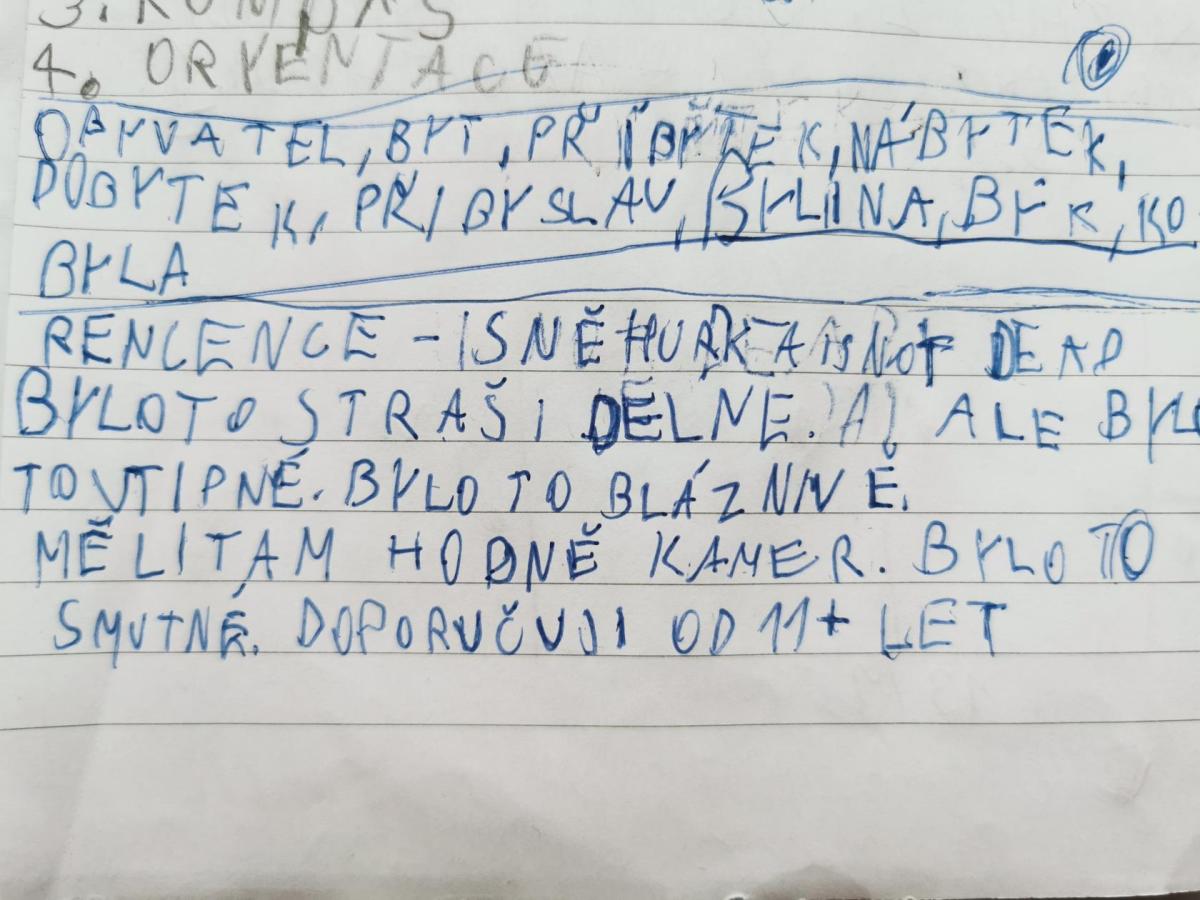 3. KOMPAS
4. ORYENTACE
OBYVATEL, BYT, PŘÍBYTEK, NÁBYTEK,
DOBYTEK, PŘIBYSLAV, BYLINA, BÝK, KO
BYLA
RENCENCE - SNĚHURKA IS NOT DEAD
BYLO TO STRAŠIDĚLNE. ALE BYLO
TO VTIPNÉ. BYLO TO BLÁZNIVÉ.
MĚLI TAM HODNĚ KAMER. BYLO TO
SMUTNÉ. DOPORUČUJI OD 11+ LET